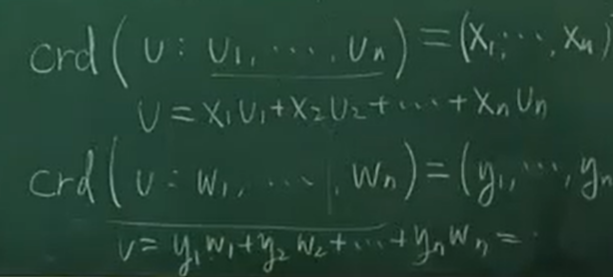 crd(υ : υ₁, ⋯, υₙ) = (x₁, ⋯, xₙ)
υ = x₁υ₁ + x₂υ₂ + ⋯ + xₙυₙ
crd(υ : w₁, ⋯, wₙ) = (y₁, ⋯, yₙ
v = y₁w₁ + y₂w₂ + ⋯ + yₙwₙ =